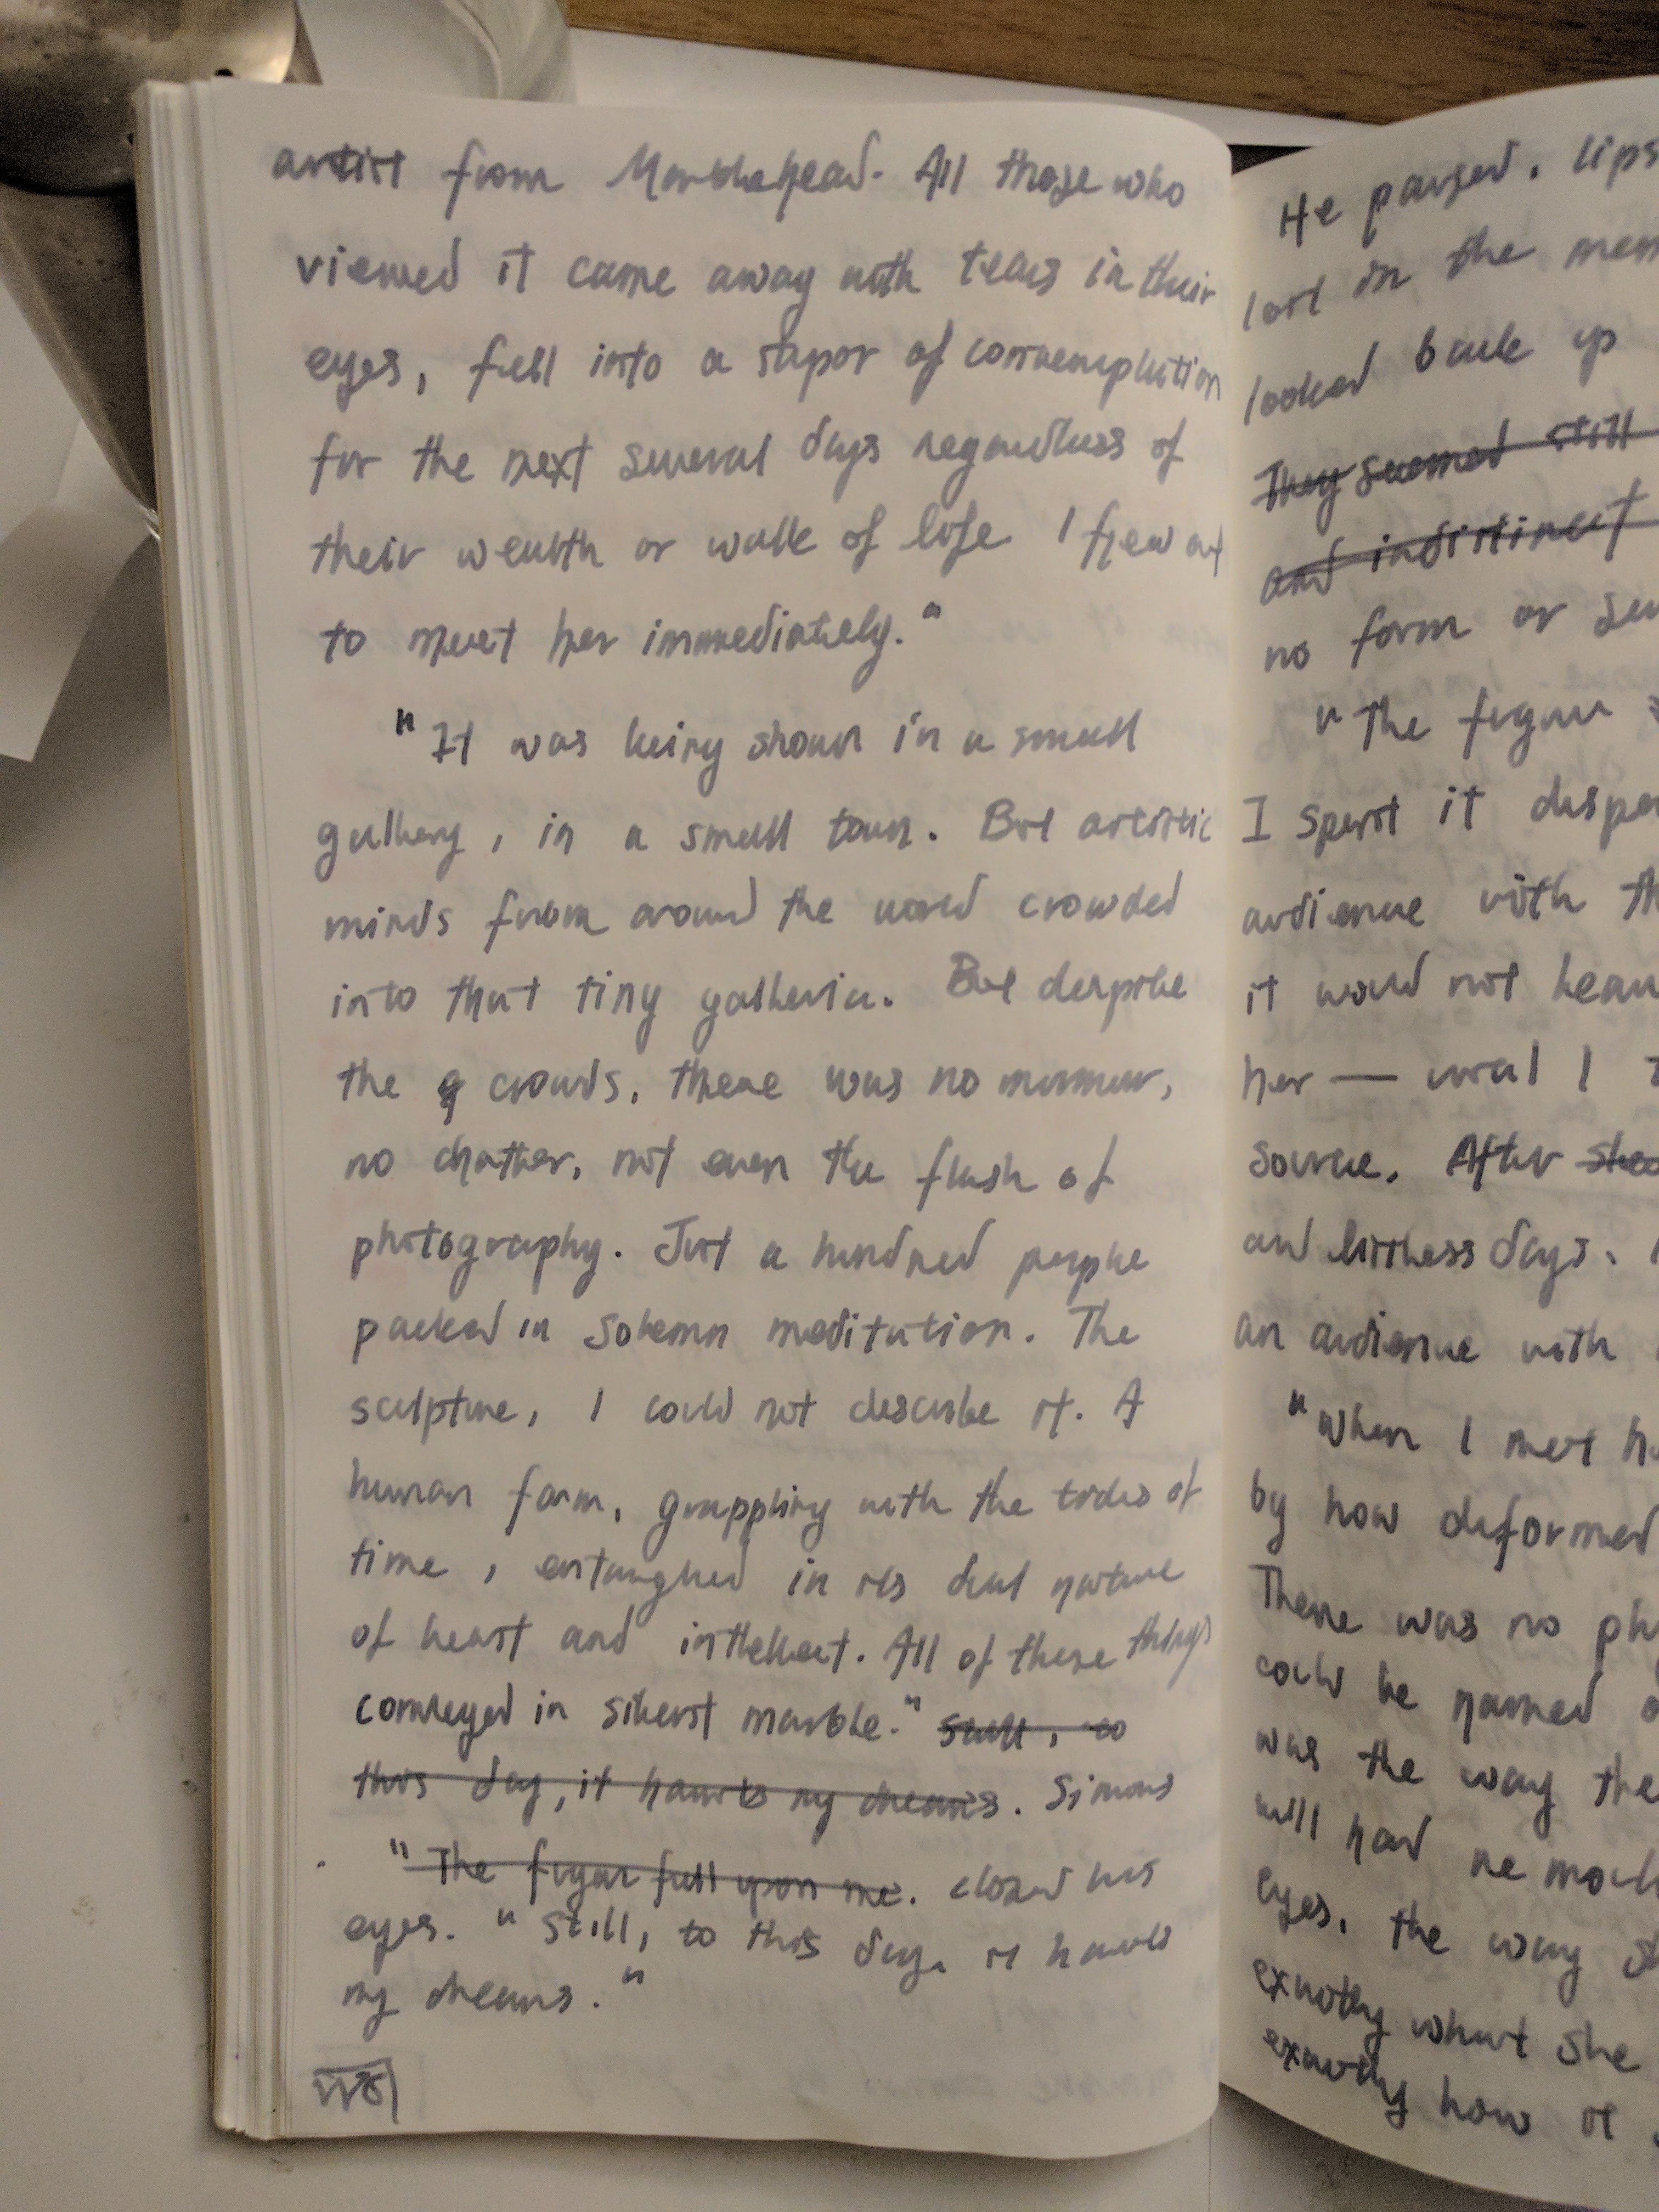 artist from Marblehead. All those who
viewed it came away with tears in their
eyes, fell into a stupor of contemplation
for the next several days regardless of
their wealth or walk of life. I flew out
to meet her immediately."
"It was being shown in a small
gallery, in a small town. But artistic
minds from around the world crowded
into that tiny galleria. But despite
the crowds, there was no murmur,
no chatter, not even the flash of
photography. Just a hundred people
packed in solemn meditation. The
sculpture, I could not describe it. A
human form, grappling with the tides of
time, entangled in its dual nature
of heart and intellect. All of these things
conveyed in silent marble." Still, to
this day, it haunts my dreams. Simons
"The figure fell upon me. closed his
eyes. "Still, to this day, it haunts
my dreams."
He paused, lips
lost in the mem
looked back up
They seemed still
and indistinct
no form or sen
"The figure
I spent it despe
audience with th
it would not
her —
source. After
and listless days.
an audience with
"When I met h
by how deformed
There was no ph
could be named o
was the way the
will had
eyes, the way sh
exactly what she
exactly how it